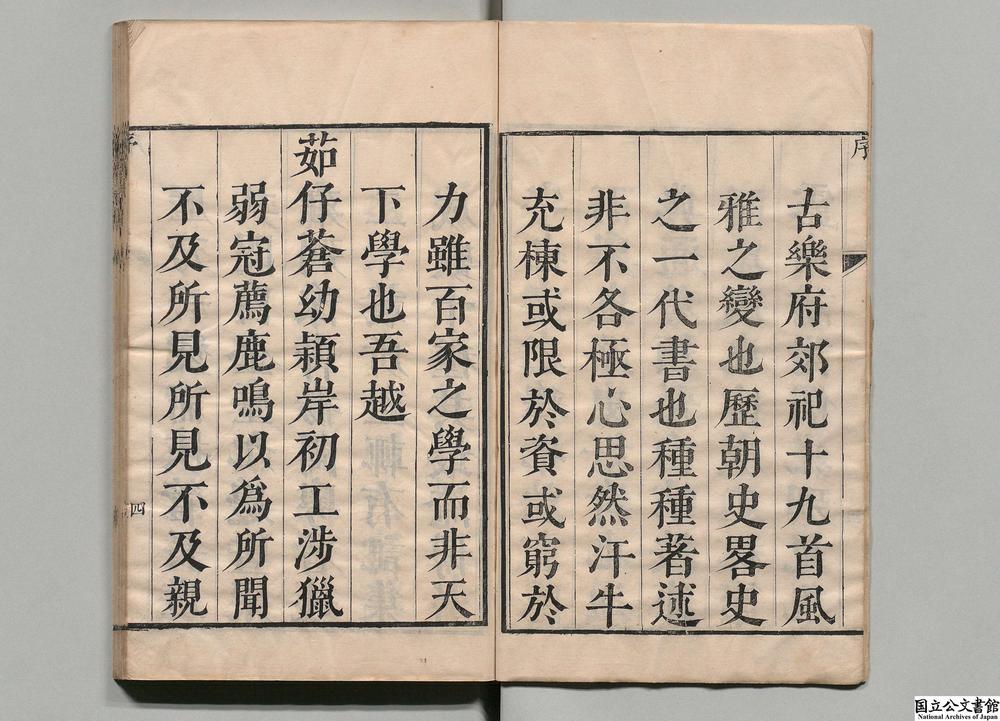 序
古樂府郊祀十九首風
雅之變也歷朝史畧史
之一代書也種種著述
非不各極心思然汗牛
充棟或限於資或窮於
力雖百家之學而非天
下學也吾越
茹仔蒼幼穎岸初工涉獵
弱冠薦鹿鳴以為所聞
不及所見所見不及親
四
国立公文書館
National Archives of Japan